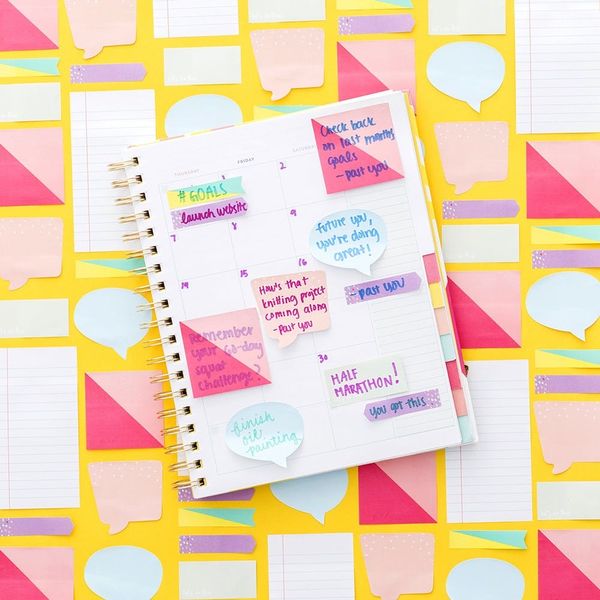 THURSDAY
FRIDAY
SATURDAY
1
2
Check back
on last month's
goals
- past you
#GOALS
launch website
7
8
9
Future you,
you're doing
great!
14
15
16
How's that
knitting project
coming along
- past you
- past you
Remember
your 60-day
squat
challenge?
30
HALF
MARATHON!
you got this
finish
oil
painting